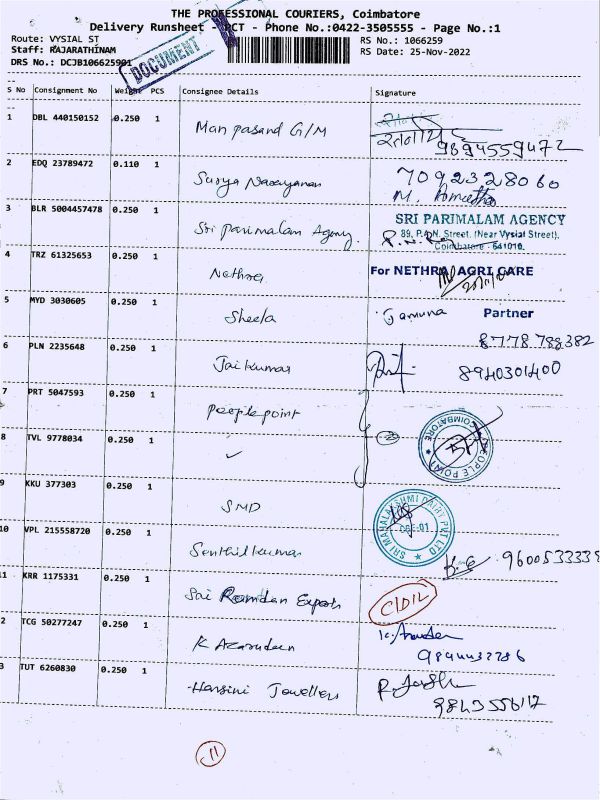 THE PROFESSIONAL COURIERS, Coimbatore
Delivery Runsheet - PCT - Phone No.:0422-3505555 - Page No.:1
Route: VYSIAL ST
RS No.: 1066259
Staff: RAJARATHINAM
RS Date: 25-Nov-2022
DRS No.: DCJB106625901
DOCUMENT
S No Consignment No Weight PCS Consignee Details Signature
1 DBL 440150152 0.250 1 Man pasand G/M
9894559472
2 EDQ 23789472 0.110 1 Surya Narayanan 7092328060
3 BLR 5004457478 0.250 1 Sri parimalam Agency
SRI PARIMALAM AGENCY
89, P.A.N. Street, (Near Vysial Street),
Coimbatore - 641010.
4 TRZ 61325653 0.250 1 Nethra For NETHRA AGRI CARE
5 MYD 3030605 0.250 1 Sheela Jamuna Partner
8778788382
6 PLN 2235648 0.250 1 Jai Kumar 8940301400
7 PRT 5047593 0.250 1 people point
PEOPLE POINT COIMBATORE
8 TVL 9778034 0.250 1 ✓
9 KKU 377303 0.250 1 SMD
SRI MAHALAKSHMI DAIRY PVT LTD
CBE-01
10 VPL 215558720 0.250 1 Senthil kumar 9600533338
11 KRR 1175331 0.250 1 Sai Ramdan Exports
2 TCG 50277247 0.250 1 K Azarudeen
3 TUT 6260830 0.250 1 Harsini Jewellers
11